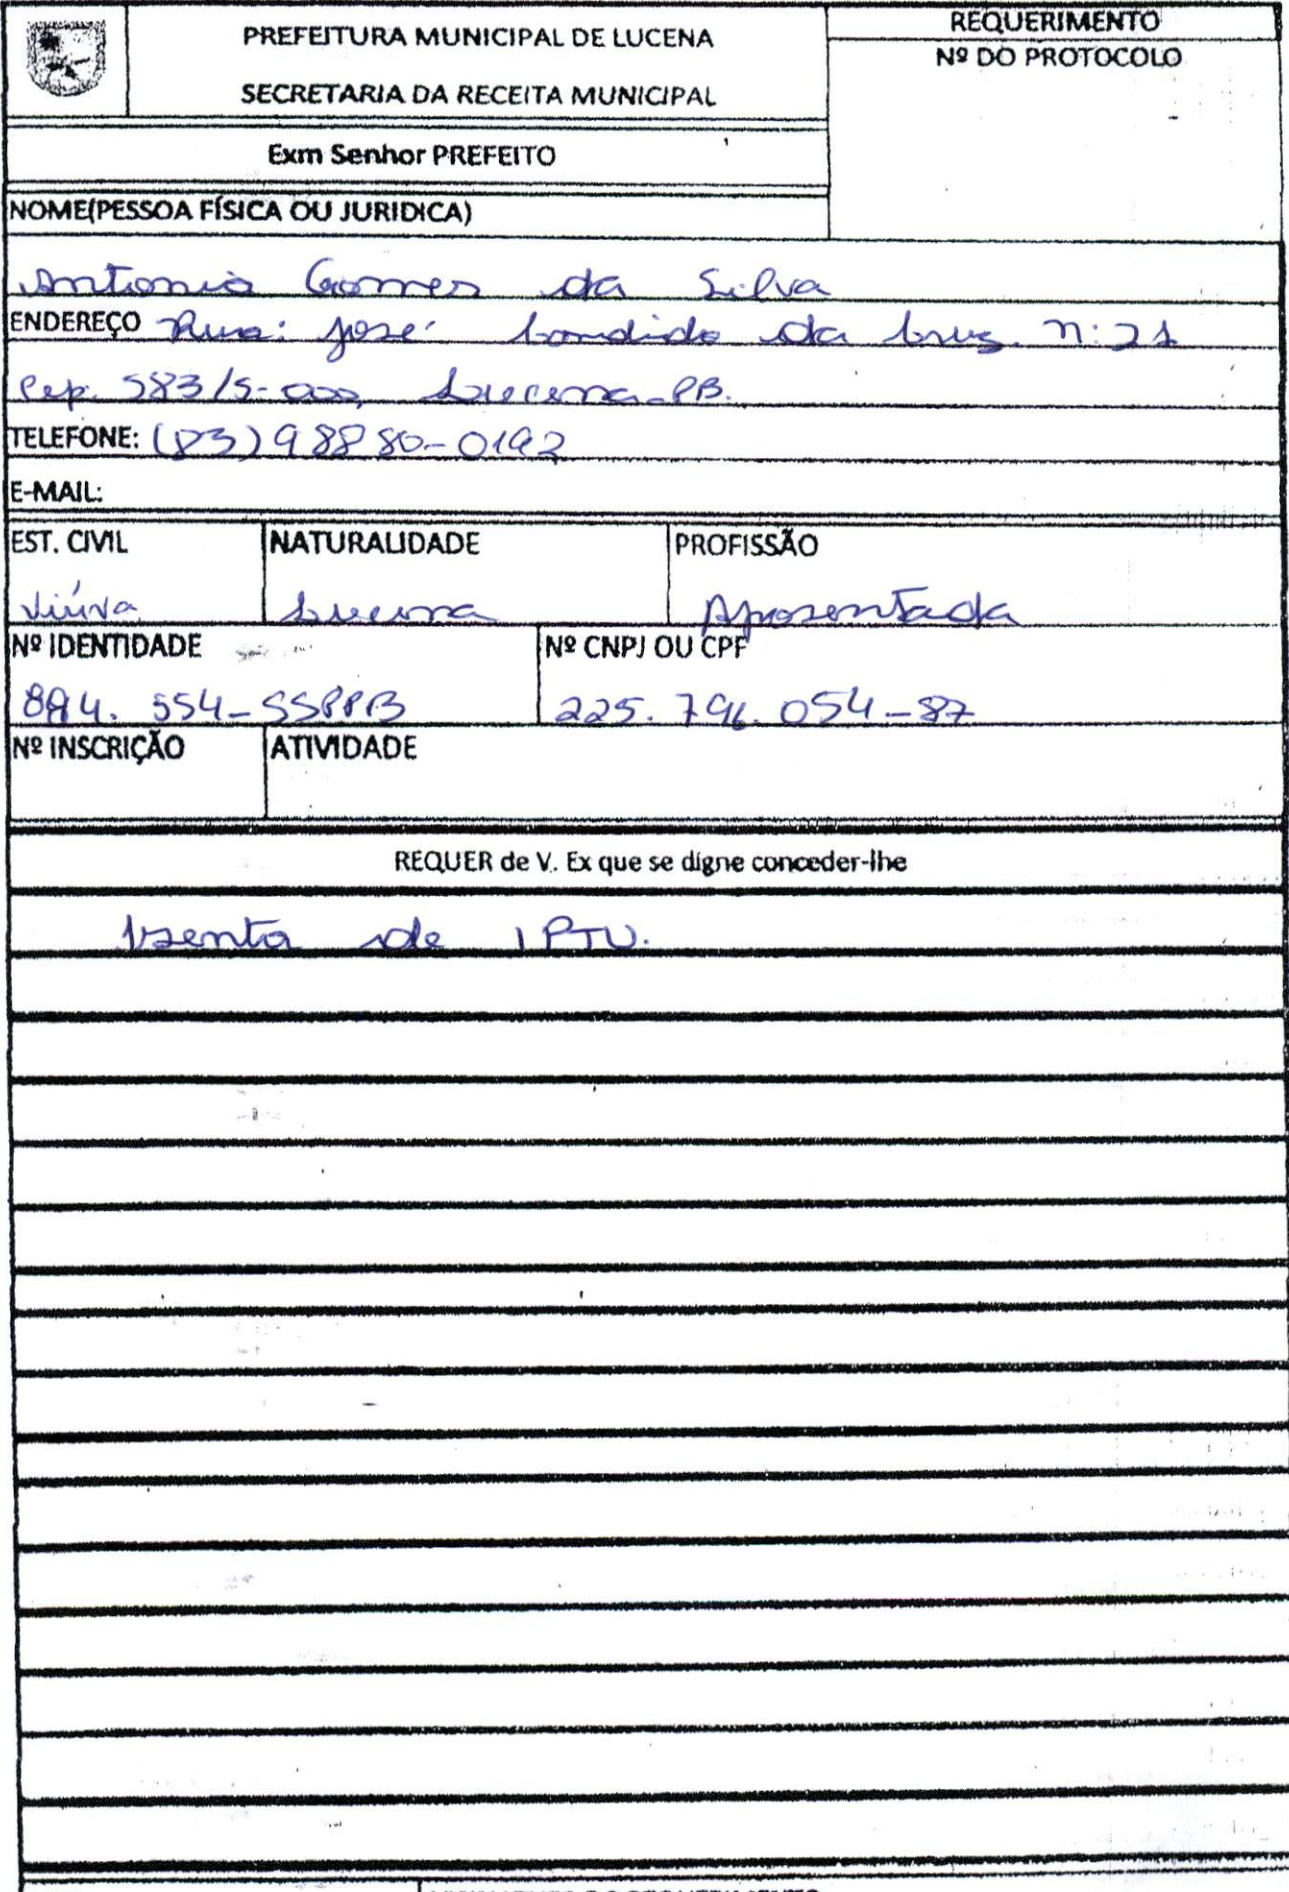 PREFEITURA MUNICIPAL DE LUCENA
SECRETARIA DA RECEITA MUNICIPAL
REQUERIMENTO
Nº DO PROTOCOLO
Exm Senhor PREFEITO
NOME(PESSOA FÍSICA OU JURIDICA)
Antonia Gomes da Silva
ENDEREÇO Rua: José Candido da Cruz. n: 21
Cep. 58315-000, Lucena-PB.
TELEFONE: (83) 98880-0192
E-MAIL:
EST. CIVIL NATURALIDADE PROFISSÃO
Viúva Lucena Aposentada
Nº IDENTIDADE Nº CNPJ OU CPF
554-SSPPB 225.796.054-87
Nº INSCRIÇÃO ATIVIDADE
REQUER de V. Ex que se digne conceder-lhe
Isenta de IPTU.